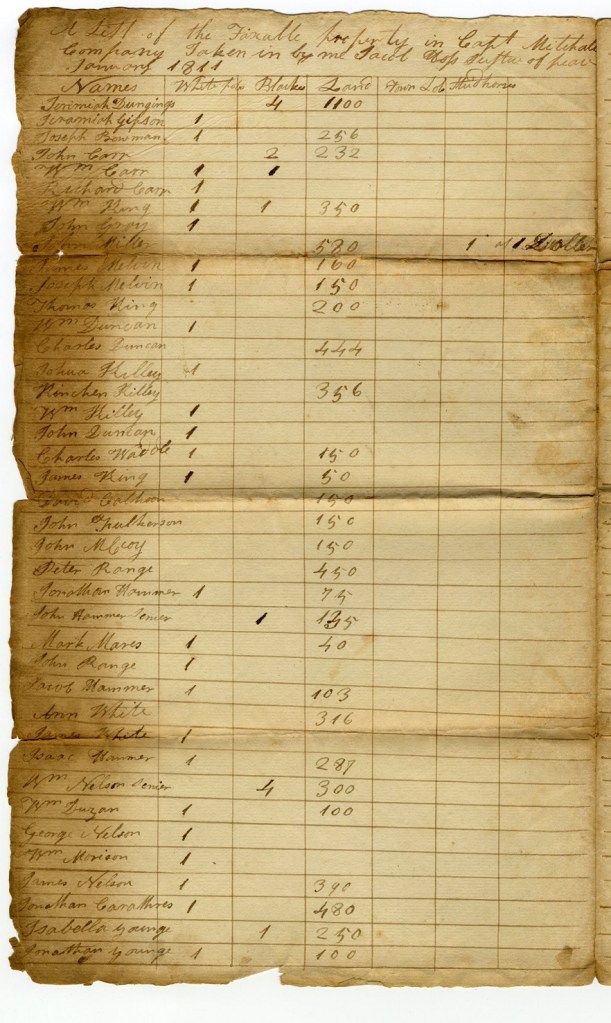 A List of the Taxable property in Capt Mitchels
Company Taken in by me Jacob justis of peac
January 1811
Names White Blackes Land Town Lots Studhorses
Jerimiah Dungings 4 1100
Jeramiah Gipson 1
Joseph Bowman 1 256
John Carr 2 232
Wm Carr 1 1
Richard Carr 1
Wm King 1 1 350
John Groy 1
Killey 580 1 at 1 Doller
James Melvin 1 160
Joseph Melvin 1 150
Thomas King 200
Wm Duncan 1
Charles Duncan 444
Joshua Killey 1
Kinchen Killey 356
Wm Killey 1
John Duncan 1
Charles Waddle 1 150
James King 1 50
David Calhoon 150
John Fulkerson 150
John McCoy 150
Peter Range 450
Jonathan Hammer 1 75
John Hammer Senier 1
Mark Mares 1 40
John Range 1
Jacob Hammer 1 103
Ann White 316
James White 1
Isaac Hammer 1 287
Wm Nelson Senier 4 300
Wm Duzan 1 100
George Nelson 1
Wm Morison 1
James Nelson 1 390
Jonathan Carathres 1 480
Isabella Younge 1 250
Jonathan Younge 1 100